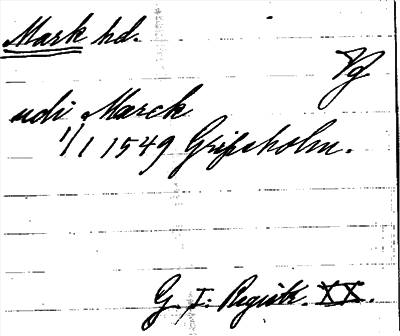 Mark hd.
Vg
udi Marck
1/1 1549 Gripsholm.
G. I: Registr. XX.